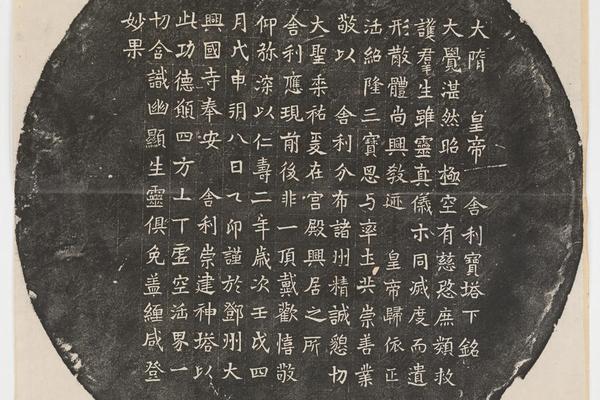 大隋　皇帝　舍利寶塔下銘
大覺湛然昭極空有慈愍庶類救
護羣生雖靈真儀示同滅度而遺
形散體尚興教迹　皇帝歸依正
法紹隆三寶思与率土共崇善業
敬以　舍利分布諸州精誠懇切
大聖垂祐爰在宮殿興居之所
舍利應現前後非一頂戴歡憘敬
仰弥深以仁壽二年歲次壬戌四
月戊申朔八日乙卯謹於鄧州大
興國寺奉安　舍利崇建神塔以
此功德願四方上下虛空法界一
切含識幽顯生靈俱免盖纏咸登
妙果